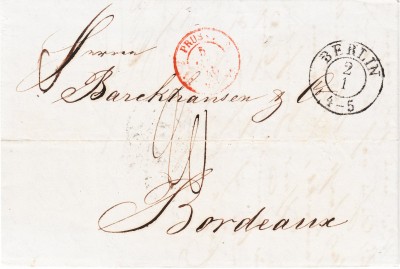 Herren
Barckhausen & Co
Bordeaux
PRUSSE
5
BERLIN
2
1
4-5